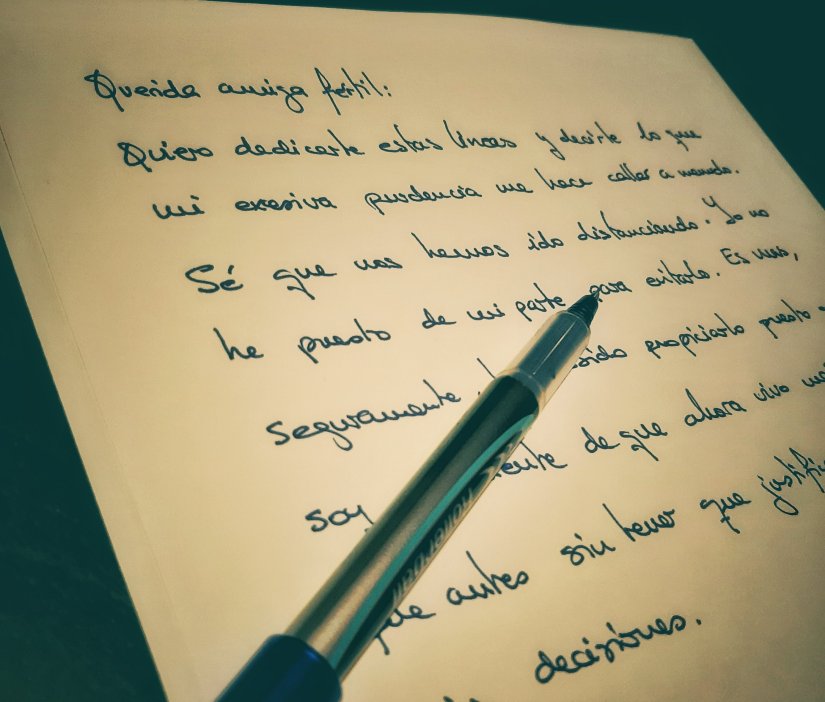 Querida amiga fértil:
Quiero dedicarte estas líneas y decirte lo que
mi excesiva prudencia me hace callar a menudo.
Sé que nos hemos ido distanciando. Yo no
he puesto de mi parte para evitarlo. Es más,
seguramente sido propiciarlo puesto
soy de que ahora vivo
que antes sin tener que
decisiones.
rollerball